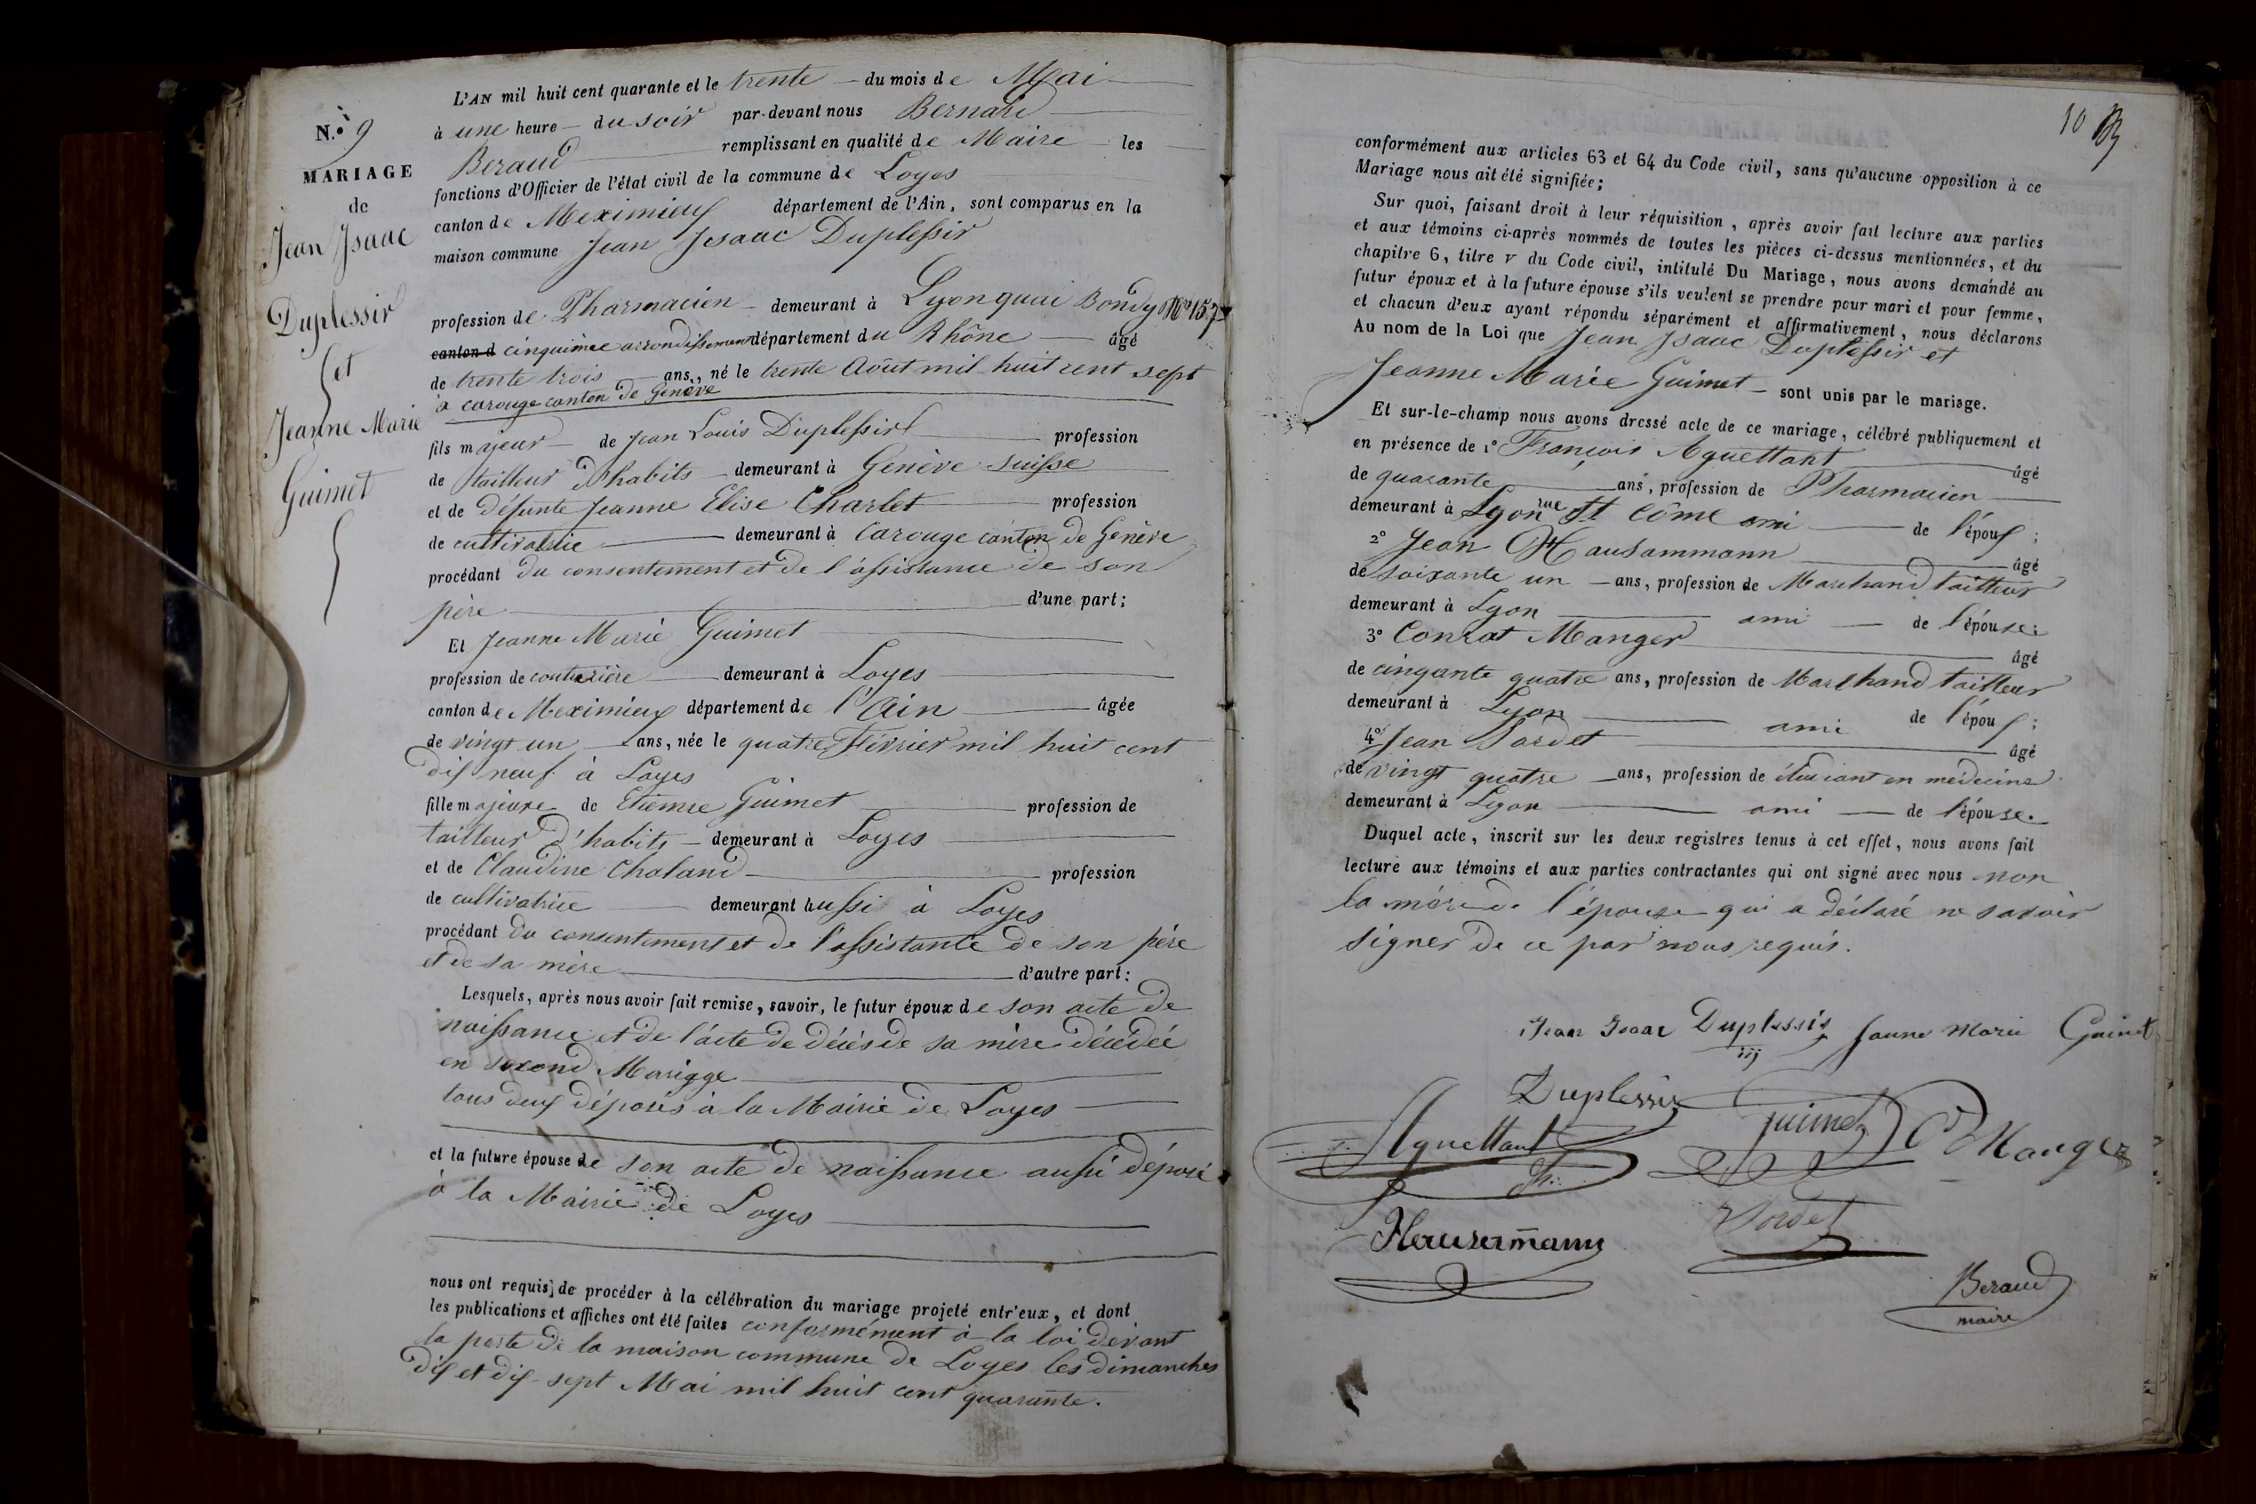 N.° 9
MARIAGE
de
Jean Isaac
Duplessis
et
Jeanne Marie
Guimet
L'AN mil huit cent quarante et le trente du mois de Mai
à une heure du soir par-devant nous Bernard
Beraud remplissant en qualité de Maire les
fonctions d'Officier de l'état civil de la commune de Loyes
canton de Meximieux département de l'Ain, sont comparus en la
maison commune Jean Isaac Duplessis
profession de Pharmacien demeurant à Lyon quai Bondy N° 157
canton d cinquième arrondissement département du Rhône âgé
de trente trois ans, né le trente Août mil huit cent sept
à carouge canton de Genève
fils majeur de Jean Louis Duplessis profession
de tailleur d'habits demeurant à Genève Suisse
et de défunte Jeanne Elise Charlet profession
de cultivatrice demeurant à Carouge canton de Genève
procédant du consentement et de l'assistance de son
père d'une part;
Et Jeanne Marie Guimet
profession de couturière demeurant à Loyes
canton de Meximieux département de l'Ain âgée
de vingt un ans, née le quatre Février mil huit cent
dix neuf à Loyes
fille majeure de Etienne Guimet profession de
tailleur d'habits demeurant à Loyes
et de Claudine Chaland profession
de cultivatrice demeurant aussi à Loyes
procédant du consentement et de l'assistance de son père
et de sa mère d'autre part:
Lesquels, après nous avoir fait remise, savoir, le futur époux de son acte de
naissance et de l'acte de décès de sa mère décédée
en second Mariage
tous deux déposés à la Mairie de Loyes
et la future épouse de son acte de naissance aussi déposé
à la Mairie de Loyes
nous ont requis de procéder à la célébration du mariage projeté entr'eux, et dont
les publications et affiches ont été faites conformément à la loi devant
la porte de la maison commune de Loyes les dimanches
dix et dix-sept Mai mil huit cent quarante.
10
conformément aux articles 63 et 64 du Code civil, sans qu'aucune opposition à ce
Mariage nous ait été signifiée;
Sur quoi, faisant droit à leur réquisition, après avoir fait lecture aux parties
et aux témoins ci-après nommés de toutes les pièces ci-dessus mentionnées, et du
chapitre 6, titre v du Code civil, intitulé Du Mariage, nous avons demandé au
futur époux et à la future épouse s'ils veulent se prendre pour mari et pour femme,
et chacun d'eux ayant répondu séparément et affirmativement, nous déclarons
Au nom de la Loi que Jean Isaac Duplessis et
Jeanne Marie Guimet sont unis par le mariage.
Et sur-le-champ nous avons dressé acte de ce mariage, célébré publiquement et
en présence de 1° François Aguettant âgé
de quarante ans, profession de Pharmacien
demeurant à Lyon rue St Côme ami de l'époux;
2° Jean Hausammann âgé
de soixante un ans, profession de Marchand tailleur
demeurant à Lyon ami de l'épouse;
3° Conrat Manger âgé
de cinqante quatre ans, profession de Marchand tailleur
demeurant à Lyon ami de l'époux;
4° Jean Sordet âgé
de vingt quatre ans, profession de étudiant en médecine
demeurant à Lyon ami de l'épouse.
Duquel acte, inscrit sur les deux registres tenus à cet effet, nous avons fait
lecture aux témoins et aux parties contractantes qui ont signé avec nous non
la mère de l'épouse qui a déclaré ne savoir
signer de ce par nous requis.
Jean Isaac Duplessis Jeanne Marie Guimet
Duplessis
Aguettant Guimet C Manger
Ph.
Hausermann Sordet
Beraud
maire